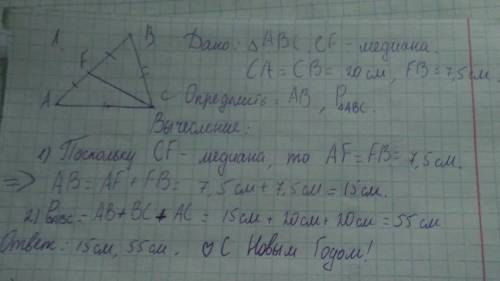 1.
B
F
A
C
Дано: △ABC, CF - медиана.
CA = CB = 20 см, FB = 7,5 см
Определить: AB, P△ABC.
Вычесление:
1) Поскольку CF - медиана, то AF = FB = 7,5 см.
=> AB = AF + FB = 7,5 см + 7,5 см = 15 см.
2) P△ABC = AB + BC + AC = 15 см + 20 см + 20 см = 55 см
Ответ: 15 см, 55 см. ♡ С Новым Годом!